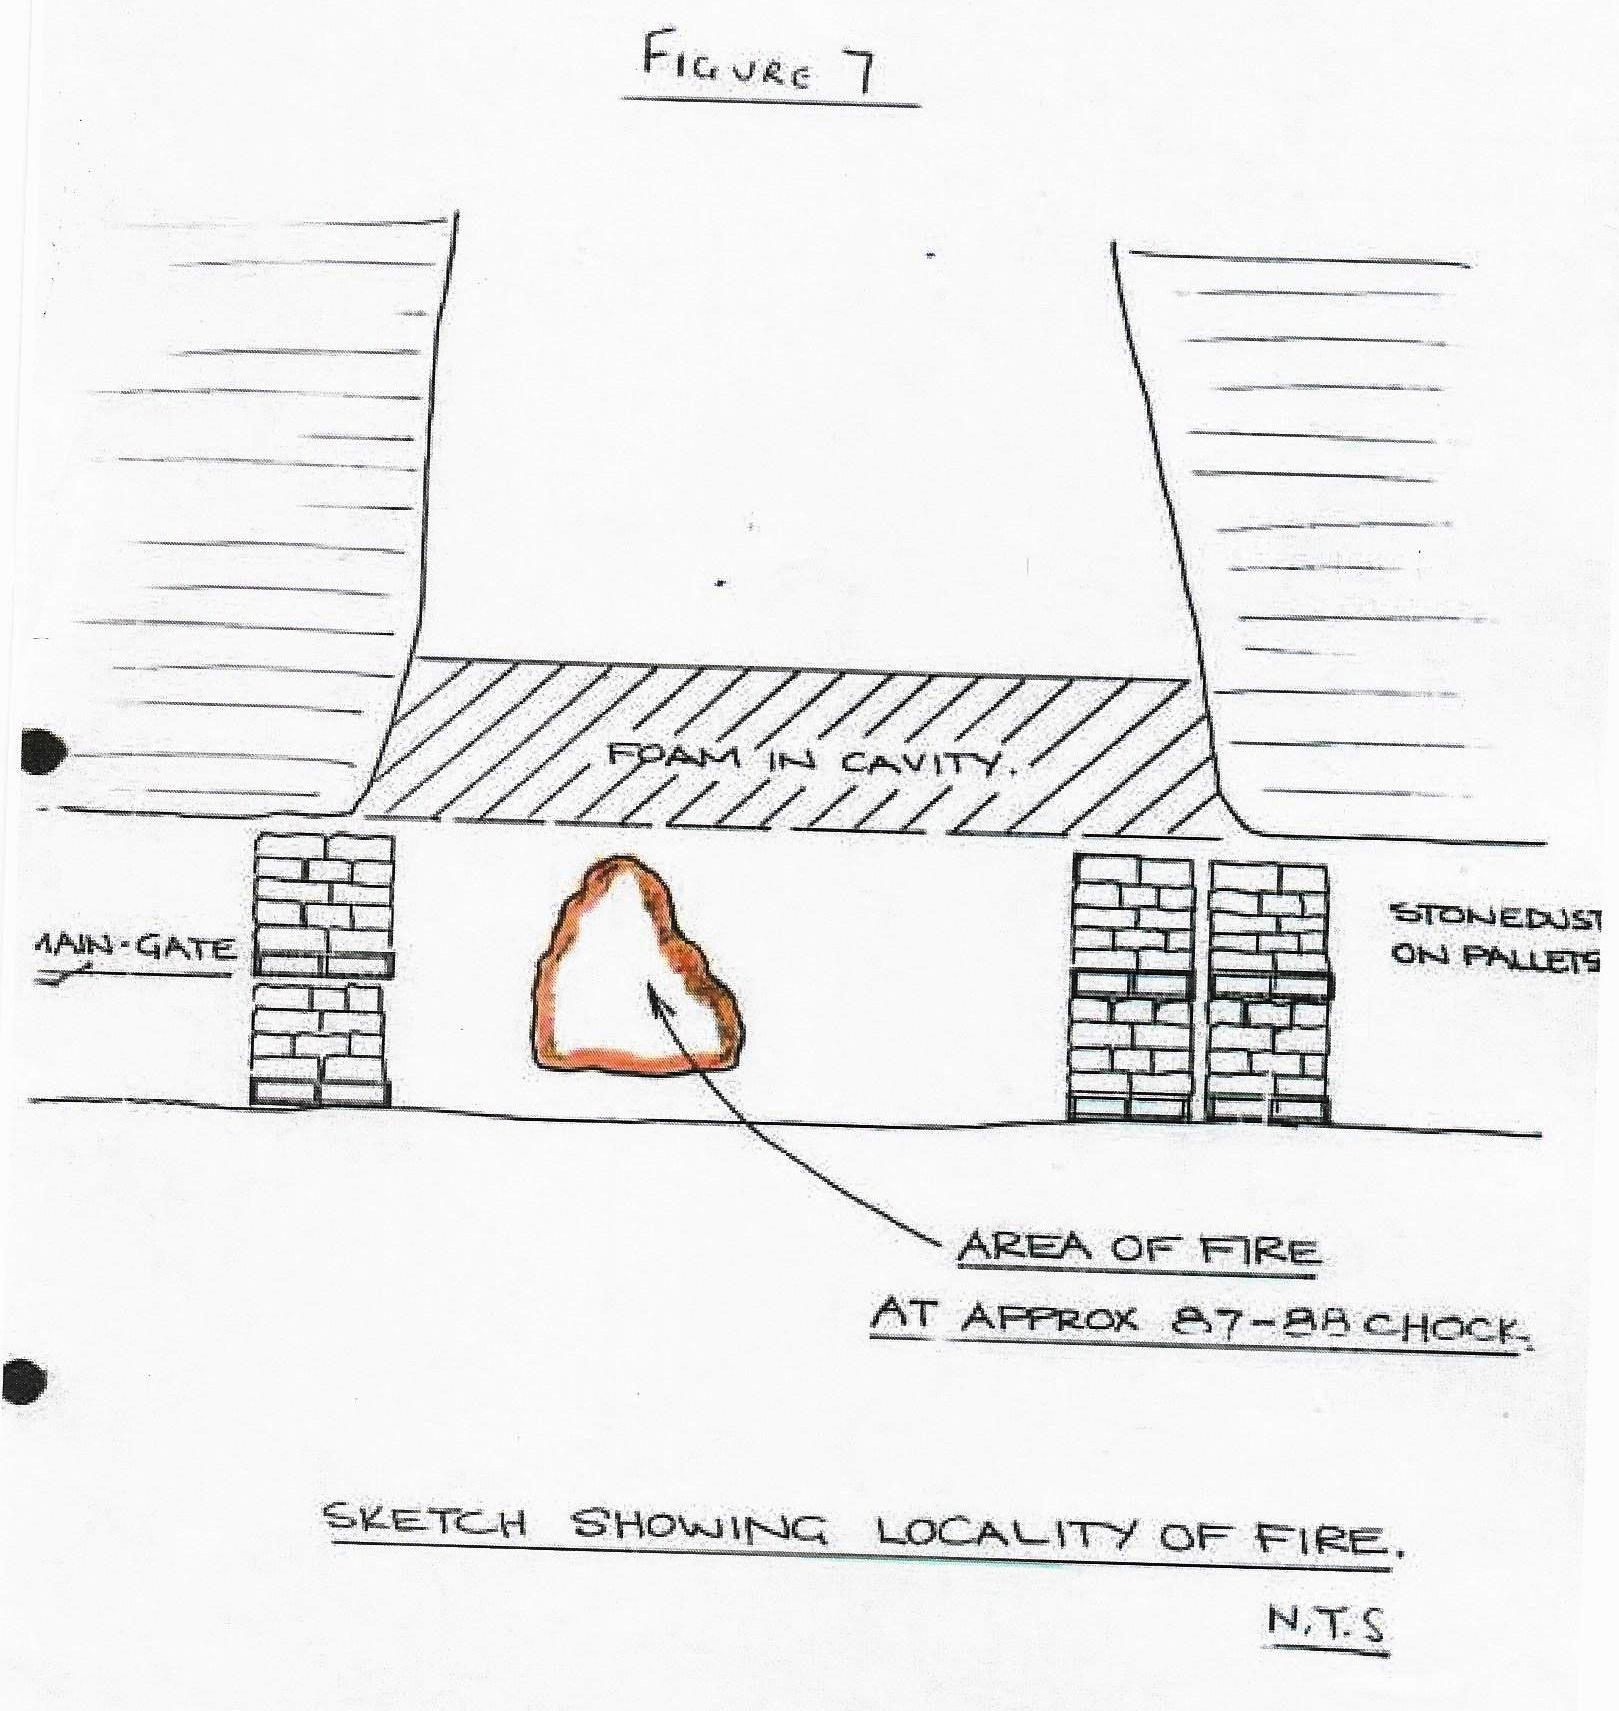 FIGURE 7
FOAM IN CAVITY.
MAIN-GATE
STONEDUST
ON PALLETS
AREA OF FIRE
AT APPROX 87-88 CHOCK.
SKETCH SHOWING LOCALITY OF FIRE.
N.T.S